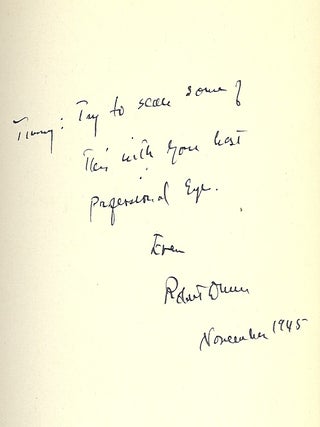 Try to scan some of
This with your best
Professional Eye.
Ever
Robert Dunn
November 1945